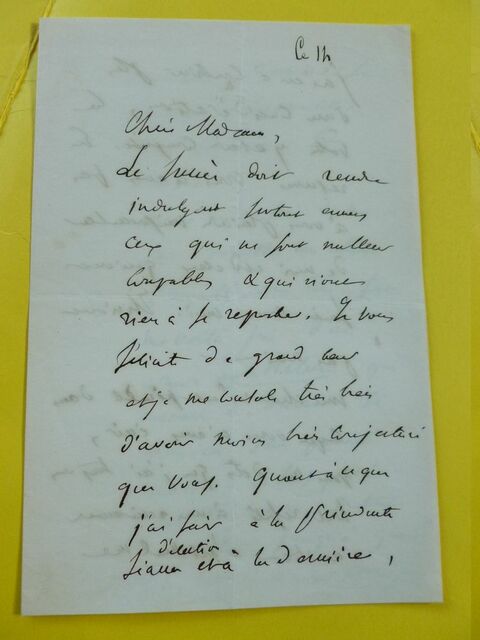 Ce 14
Chère Madame,
Le succès doit rendre
indulgent surtout envers
ceux qui ne sont nullement
coupables & qui n'ont
rien à se reprocher. Je vous
félicite de grand cœur
et je me console très bien
d'avoir moins bien conjecturé
que vous. Quant à ce que
j'ai fait à la précédente
d'élection
séance et à la dernière,